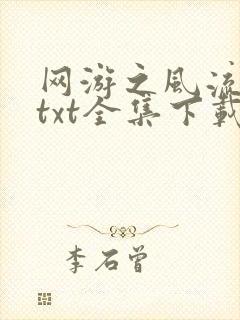 网游之风流
txt全集下载
李石曾